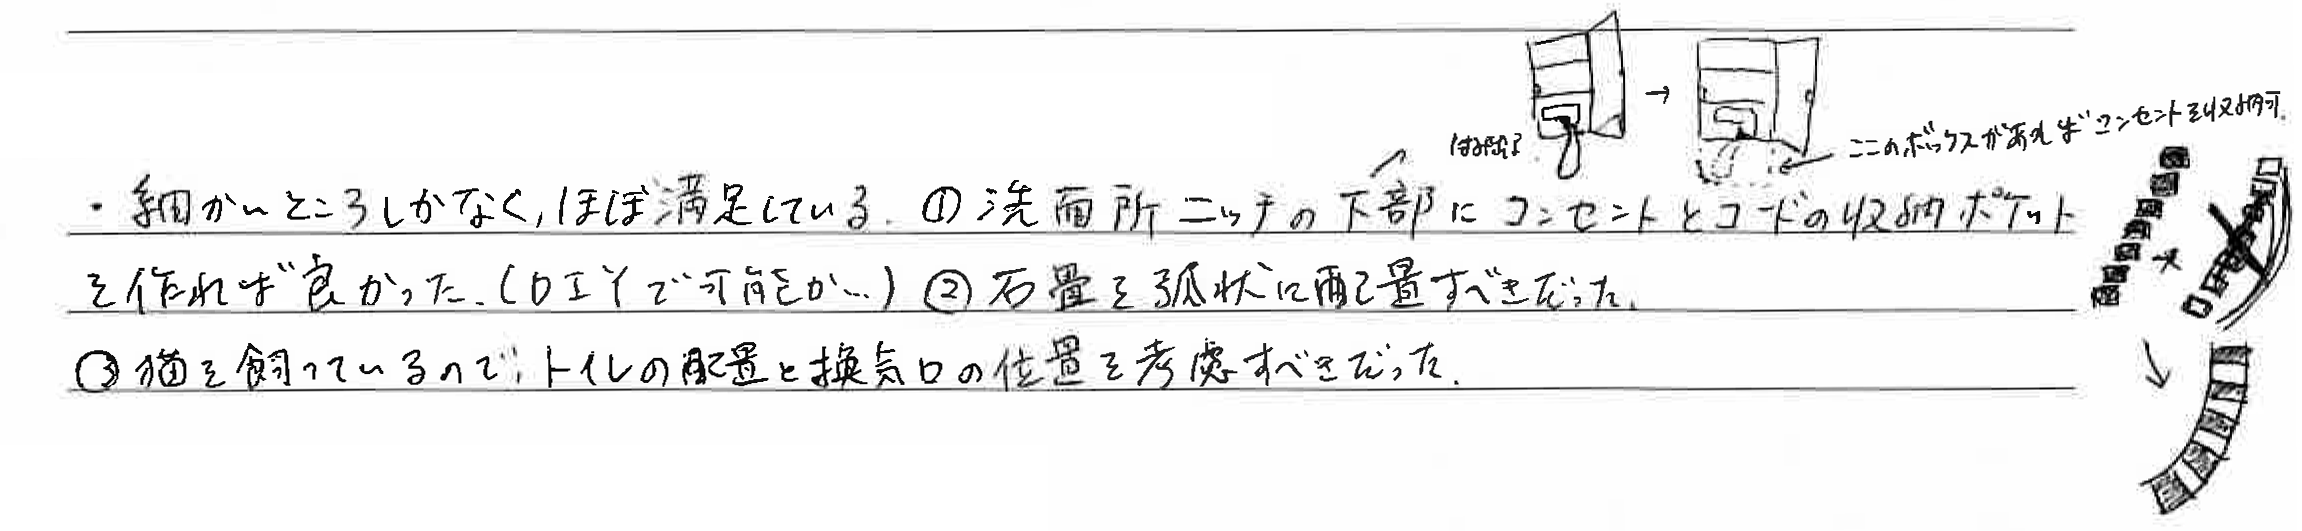 はみ出る
ここのボックスがあればコンセントを収納可.
・細かいところしかなく,ほぼ満足している. ①洗面所ニッチの下部にコンセントとコードの収納ポケット
を作れば良かった.(DIYで可能か…) ②石畳を弧状に配置すべきだった.
③猫を飼っているので,トイレの配置と換気口の位置を考慮すべきだった.